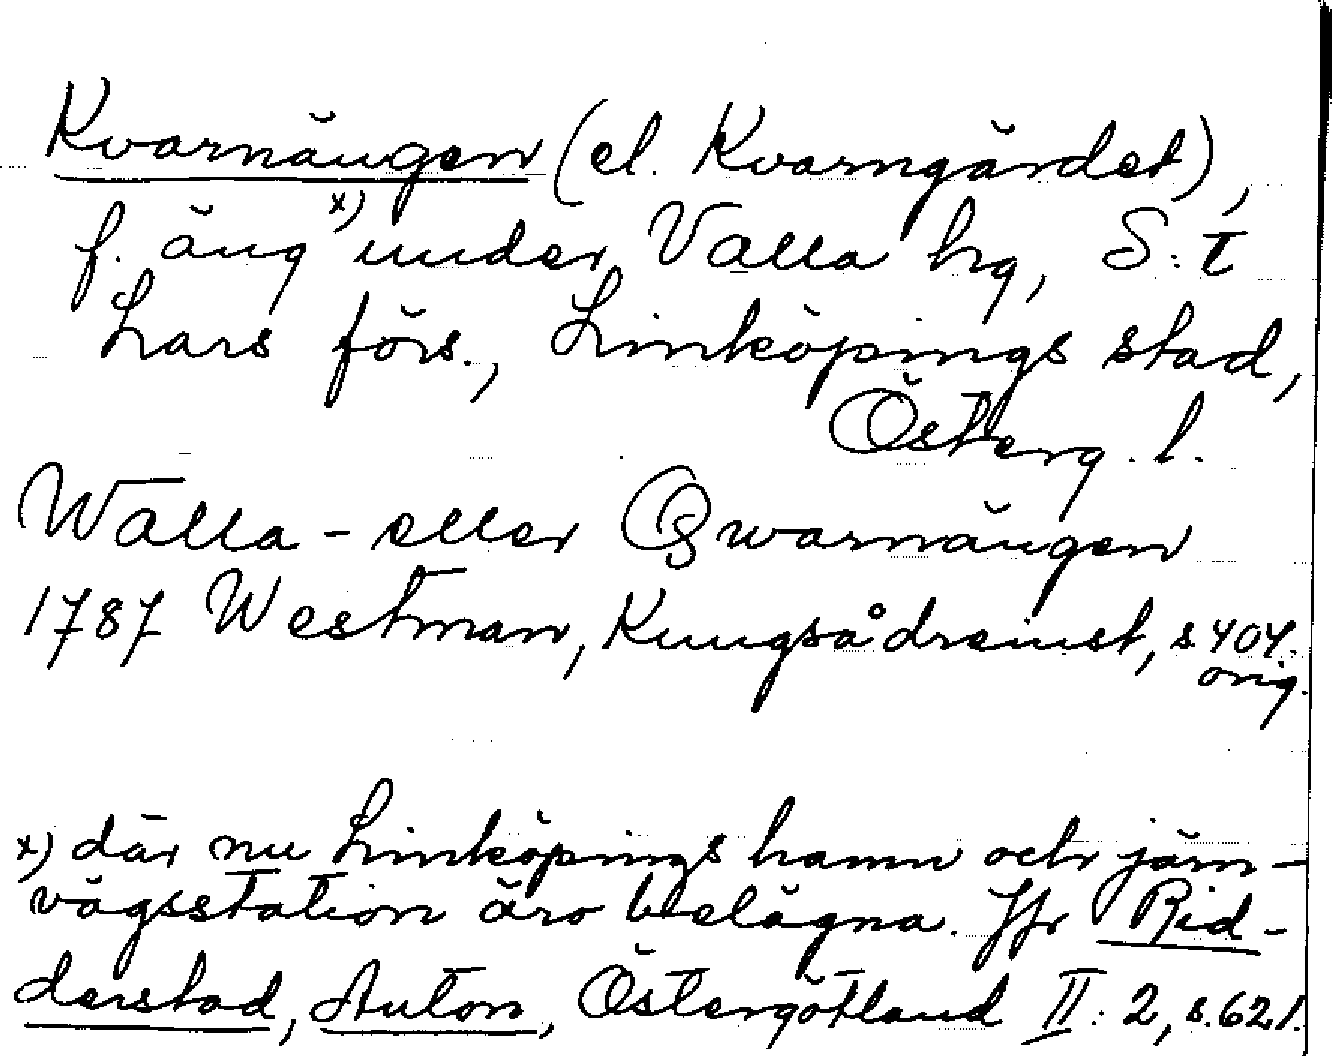 Kvarnängen (el. Kvarngärdet),
f. äng x) under Valla hg, S:t
Lars förs., Linköpings stad,
Österg. l.
Walla- eller Qwarnängen
1787 Westman, Kungsådreinst, s. 404.
orig.
x) där nu Linköpings hamn och järn-
vägsstation äro belägna. Jfr Rid-
derstad, Anton, Östergötland II: 2, s. 621.